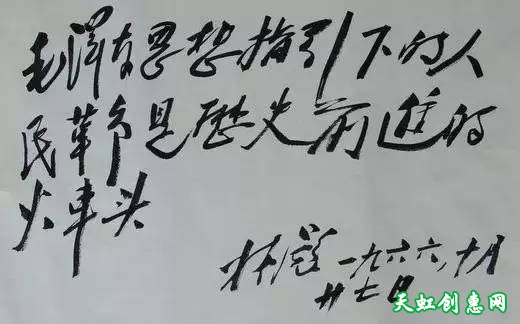 毛泽东思想指引下的人
民革命是歷史前進的
火車头
林彪 一九六六、十月
廿七日
天虹创惠网